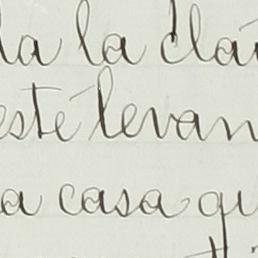 la la cla
este levan
a casa qu